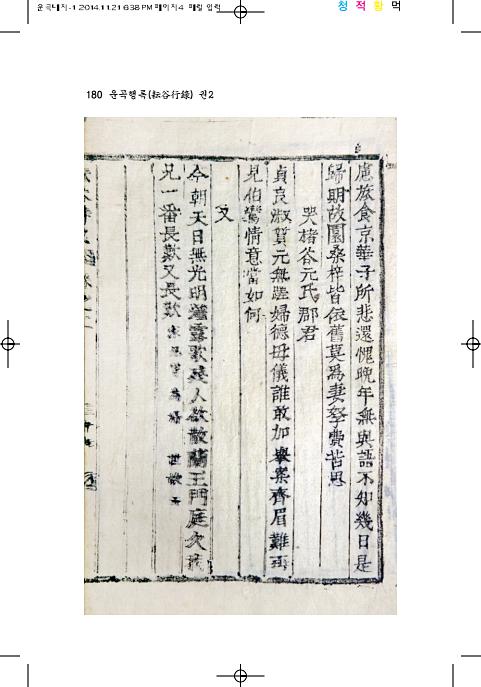 운곡내지-1 2014.11.21 6:38 PM 페이지4 매일 업력
청 적 황 먹
180 운곡행록(耘谷行錄) 권2
慮旅食京華子所悲還愧晩年無與語不知幾日是
歸期故園桑梓皆依舊莫爲妻孥費苦思
哭楮谷元氏郡君
貞良淑質元無雙婦德母儀誰敢加擧案齊眉難再
見伯鸞情意當如何
又
今朝天日無光明薤露歌殘人欲散蘭玉門庭久
兄一番長歎又長歎